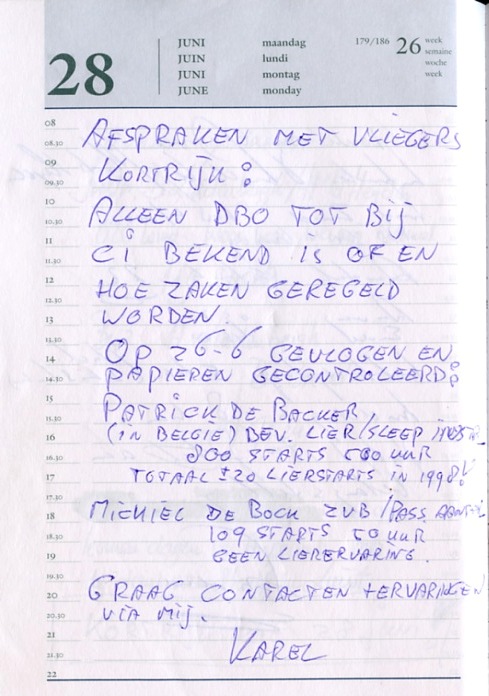 28
JUNI maandag 179/186 26 week
JUIN lundi semaine
JUNI montag woche
JUNE monday week
08
08.30
09
09.30
10
10.30
11
11.30
12
12.30
13
13.30
14
14.30
15
15.30
16
16.30
17
17.30
18
18.30
19
19.30
20
20.30
21
21.30
22
AFSPRAKEN MET VLIEGERS
KORTRIJK:
ALLEEN DBO TOT BIJ
CI BEKEND IS OF EN
HOE ZAKEN GEREGELD
WORDEN.
OP 26-6 GEVLOGEN EN
PAPIEREN GECONTROLEERD:
PATRICK DE BACKER,
(IN BELGIË) BEV. LIER/SLEEP
800 STARTS 500 UUR
TOTAAL ±20 LIERSTARTS IN 1998!
MICHIEL DE BOCK ZVB/PASS
109 STARTS 50 UUR
GEEN LIERERVARING.
GRAAG CONTACTEN + ERVARINGEN
VIA MIJ.
KAREL